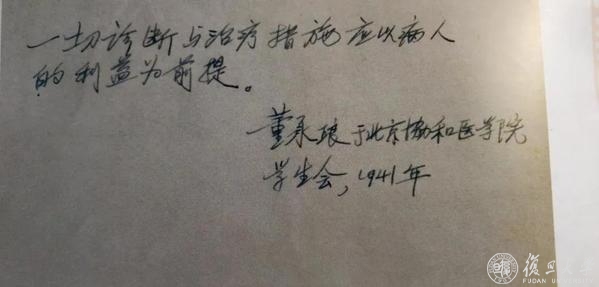 一切诊断与治疗措施应以病人
的利益为前提。
董承琅于北京协和医学院
学生会，1941年
復旦大學
FUDAN UNIVERSITY